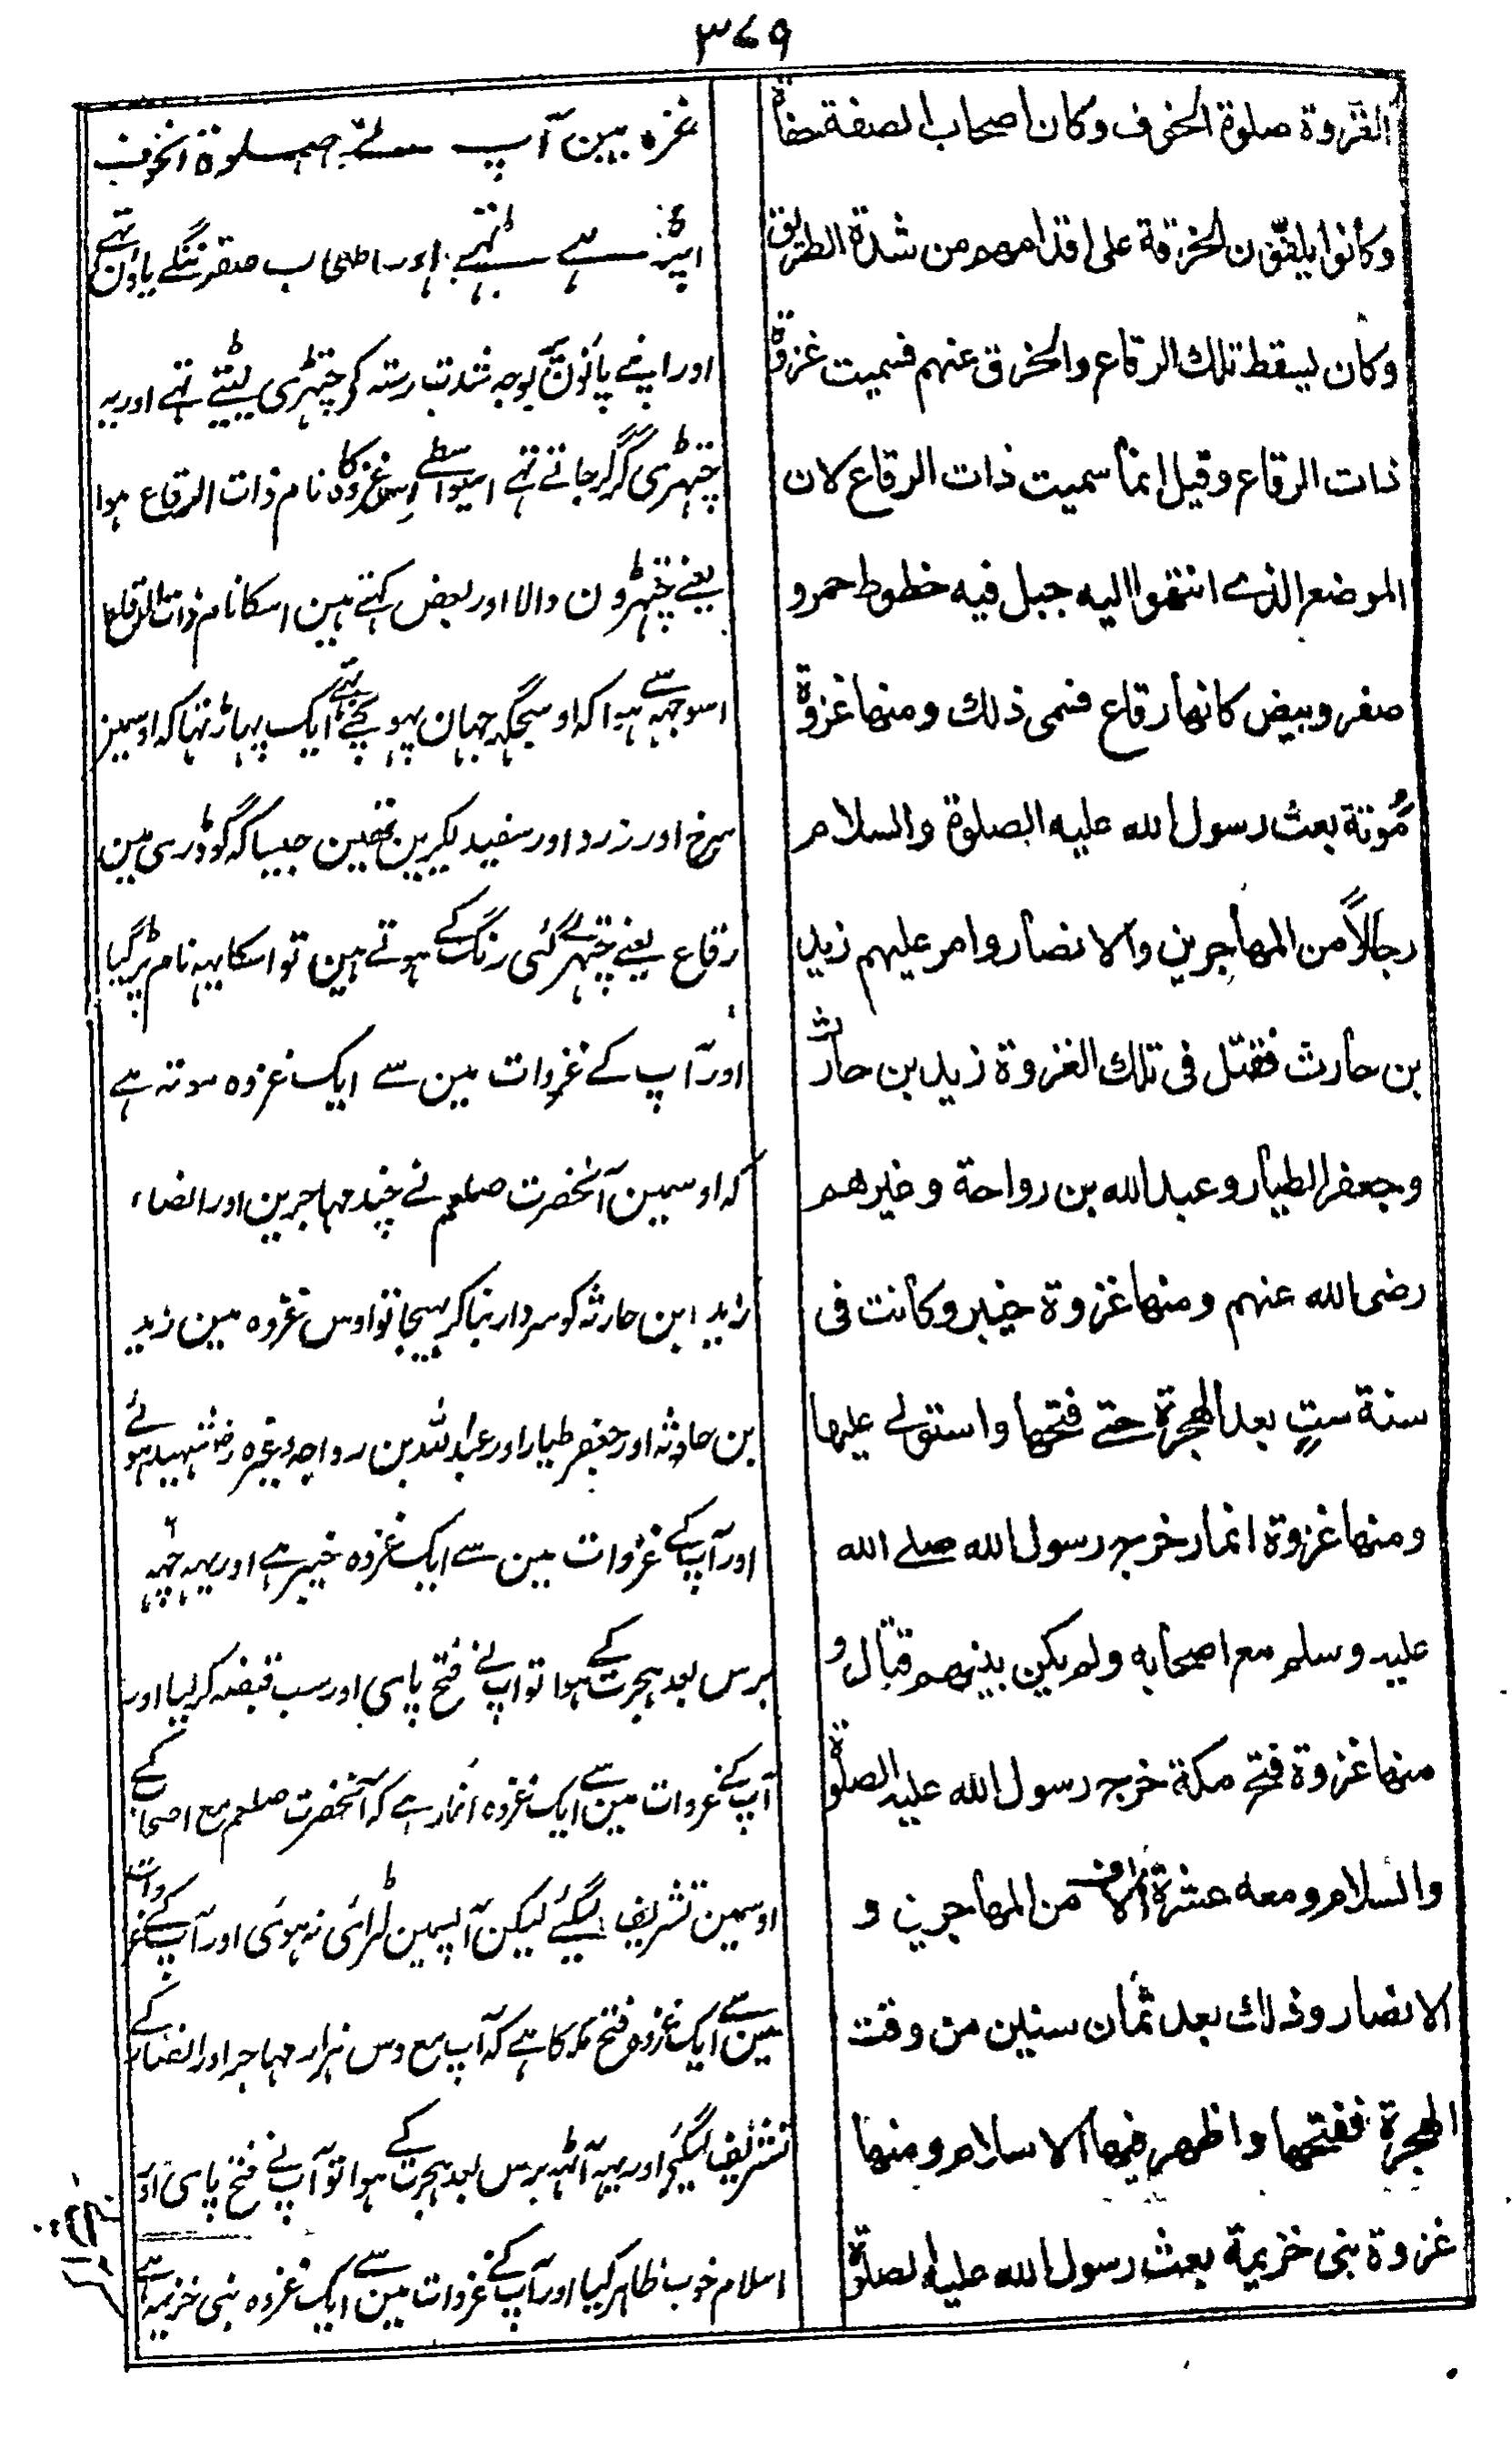 ٣٧٩
الغزوة صلوة الخوف وكان اصحاب الصفة حفاة
وكانوا يلفّون الخرقة على اقدامهم من شدة الطريق
وكان يسقط تلك الرقاع والخرق عنهم فسميت غزوة
ذات الرقاع وقيل انما سميت ذات الرقاع لان
الموضع الذے انتهوا اليه جبل فيه خطوط حمر و
صفر وبيض كانها رقاع فسمى ذلك ومنها غزوة
مُوتة بعث رسول الله عليه الصلوة والسلام
رجالاً من المهاجرين والانصار وامر عليهم زيد
بن حارث فقتل فى تلك الغزوة زيد بن حارث
وجعفر الطيار وعبد الله بن رواحة وغيرهم
رضى الله عنهم ومنها غزوة خيبر وكانت فى
سنة ستٍ بعد الهجرة حتے فتحها واستولے عليها
ومنها غزوة انمار خرج رسول الله صلے الله
عليه وسلم مع اصحابه ولم يكن بينهم قتال و
منها غزوة فتح مكة خرج رسول الله عليه الصلوة
والسلام ومعه عشرة الاف من المهاجرين و
الانصار وذلك بعد ثمان سنين من وقت
الهجرة ففتحها واظهر فيها الاسلام ومنها
غزوة بنى خزيمة بعث رسول الله عليه الصلوة
غزہ مین آپ نے صلوة الخوف
پڑہے تہے اور اصحاب صفہ ننگے پاون تہے
اور اپنے پانون کو بوجہ شدت رستہ کے چتہڑی لپیٹتے تہے اور یہ
چتہڑی گر گر جاتے تہے اسیواسطے اس غزوہ کا نام ذات الرقاع ہوا
یعنے چتہڑون والا اور بعض کہتے ہین اسکا نام ذات الرقاع
اسوجہہ سے ہوا کہ اوسجگہ جہان پہونچے تہے ایک پہاڑ تہا کہ اوسمین
سرخ اور زرد اور سفید لکیرین تھین جیسا کہ گوڈری مین
رقاع یعنے چتہڑے کئی رنگ کے ہوتے ہین تو اسکا یہہ نام پڑگیا
اور آپ کے غزوات مین سے ایک غزوہ موتہ ہے
کہ اوسمین آنحضرت صلعم نے چند مہاجرین اور انصار
زید ابن حارثہ کو سردار بنا کر بہیجا تو اوس غزوہ مین زید
بن حارثہ اور جعفر طیار اور عبد اللہ بن رواحہ وغیرہ رض شہید ہوئے
اور آپ کے غزوات مین سے ایک غزوہ خیبر ہے اور یہہ چہہ
برس بعد ہجرت کے ہوا تو آپ نے فتح پاسی اور سب قبضہ کر لیا اور
آپ کے غزوات مین سے ایک غزوہ انمار ہے کہ آنحضرت صلعم مع اصحاب کے
اوسمین تشریف لیگئے لیکن آپسمین لڑائی نہ ہوئی اور آپ کے غزوات
مین سے ایک غزوہ فتح مکہ کا ہے کہ آپ مع دس ہزار مہاجر اور انصار کے
تشریف لیگئے اور یہہ آٹہہ برس بعد ہجرت کے ہوا تو آپ نے فتح پاسی اور
اسلام خوب ظاہر کیا اور آپ کے غزوات مین سے ایک غزوہ بنی خزیمہ ہے